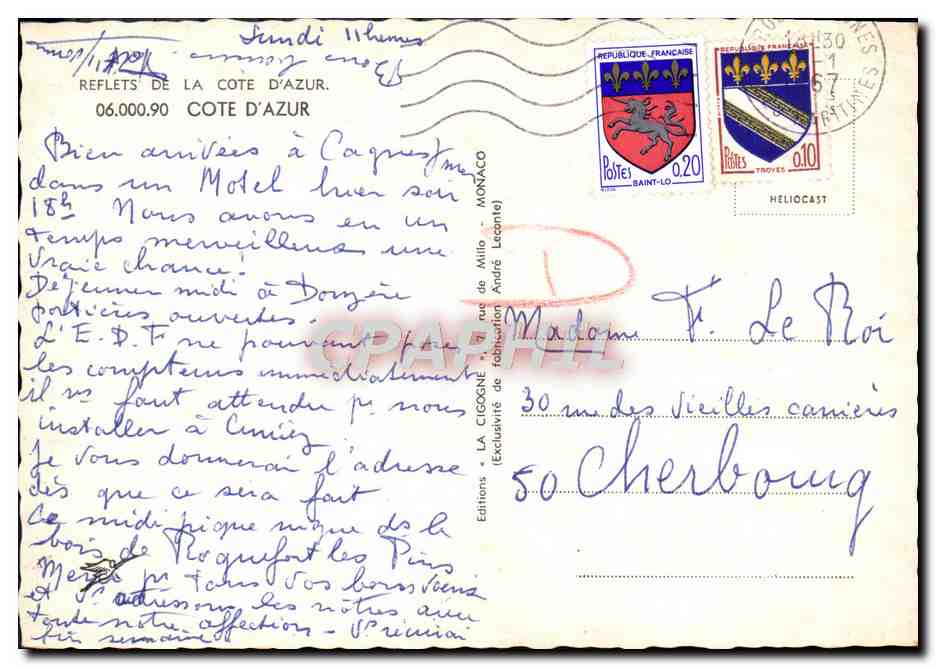 Lundi 11 heures
REFLETS DE LA COTE D'AZUR.
06.000.90 COTE D'AZUR
Bien arrivées à Cagnes s/mer
dans un Motel hier soir
18h Nous avons eu un
temps merveilleux une
vraie chance!
Déjeuner midi à Donzère
portières ouvertes.
L'E.D.F ne pouvant poser
les compteurs immédiatement
il ns faut attendre pr nous
installer à Cimiez
Je vous donnerai l'adresse
dès que ce sera fait
Ce midi pique nique ds le
bois de Roquefort les Pins
Merci pr tous vos bons voeux
et vs adressons les nôtres avec
toute notre affection
Editions « LA CIGOGNE », 7, rue de Millo - MONACO
(Exclusivité de fabrication André Leconte)
REPUBLIQUE FRANÇAISE
POSTES 0,20
SAINT-LO
REPUBLIQUE FRANÇAISE
POSTES 0,10
TROYES
67
HELIOCAST
D
CPAPHIL
Madame F. Le Roi
30 rue des Vieilles carrières
50 Cherbourg